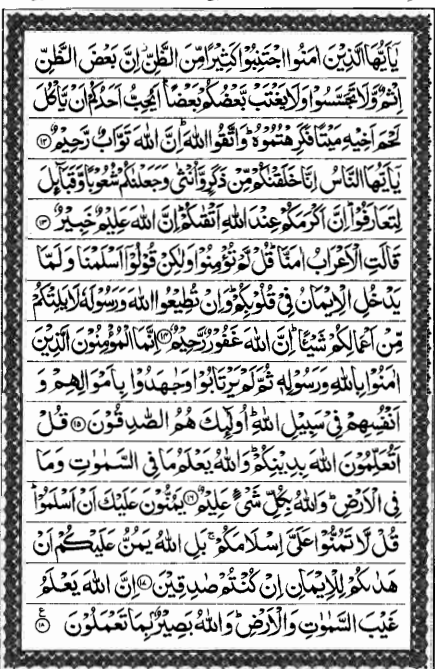 يٰۤاَيُّهَا الَّذِيْنَ اٰمَنُوا اجْتَنِبُوْا كَثِيْرًا مِّنَ الظَّنِّ ۫ اِنَّ بَعْضَ الظَّنِّ
اِثْمٌ وَّلَا تَجَسَّسُوْا وَلَا يَغْتَبْ بَّعْضُكُمْ بَعْضًا ؕ اَيُحِبُّ اَحَدُكُمْ اَنْ يَّاْكُلَ
لَحْمَ اَخِيْهِ مَيْتًا فَكَرِهْتُمُوْهُ ؕ وَاتَّقُوا اللّٰهَ ؕ اِنَّ اللّٰهَ تَوَّابٌ رَّحِيْمٌ ۝۱۲
يٰۤاَيُّهَا النَّاسُ اِنَّا خَلَقْنٰكُمْ مِّنْ ذَكَرٍ وَّاُنْثٰى وَجَعَلْنٰكُمْ شُعُوْبًا وَّقَبَآئِلَ
لِتَعَارَفُوْا ؕ اِنَّ اَكْرَمَكُمْ عِنْدَ اللّٰهِ اَتْقٰىكُمْ ؕ اِنَّ اللّٰهَ عَلِيْمٌ خَبِيْرٌ ۝۱۳
قَالَتِ الْاَعْرَابُ اٰمَنَّا ؕ قُلْ لَّمْ تُؤْمِنُوْا وَلٰكِنْ قُوْلُوْۤا اَسْلَمْنَا وَلَمَّا
يَدْخُلِ الْاِيْمَانُ فِيْ قُلُوْبِكُمْ ؕ وَاِنْ تُطِيْعُوا اللّٰهَ وَرَسُوْلَهٗ لَا يَلِتْكُمْ
مِّنْ اَعْمَالِكُمْ شَيْـًٔا ؕ اِنَّ اللّٰهَ غَفُوْرٌ رَّحِيْمٌ ۝۱۴ اِنَّمَا الْمُؤْمِنُوْنَ الَّذِيْنَ
اٰمَنُوْا بِاللّٰهِ وَرَسُوْلِهٖ ثُمَّ لَمْ يَرْتَابُوْا وَجٰهَدُوْا بِاَمْوَالِهِمْ وَ
اَنْفُسِهِمْ فِيْ سَبِيْلِ اللّٰهِ ؕ اُولٰٓئِكَ هُمُ الصّٰدِقُوْنَ ۝۱۵ قُلْ
اَتُعَلِّمُوْنَ اللّٰهَ بِدِيْنِكُمْ ؕ وَاللّٰهُ يَعْلَمُ مَا فِي السَّمٰوٰتِ وَمَا
فِي الْاَرْضِ ؕ وَاللّٰهُ بِكُلِّ شَيْءٍ عَلِيْمٌ ۝۱۶ يَمُنُّوْنَ عَلَيْكَ اَنْ اَسْلَمُوْا ؕ
قُلْ لَّا تَمُنُّوْا عَلَيَّ اِسْلَامَكُمْ ۚ بَلِ اللّٰهُ يَمُنُّ عَلَيْكُمْ اَنْ
هَدٰىكُمْ لِلْاِيْمَانِ اِنْ كُنْتُمْ صٰدِقِيْنَ ۝۱۷ اِنَّ اللّٰهَ يَعْلَمُ
غَيْبَ السَّمٰوٰتِ وَالْاَرْضِ ؕ وَاللّٰهُ بَصِيْرٌۢ بِمَا تَعْمَلُوْنَ ۝۱۸ ع